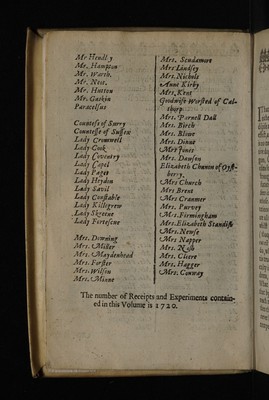 Mr Hendly
Mr. Hampton
Mr. Warth.
Mr. Nost.
Mr. Hutton
Mr. Gaskin
Paracelsus
Countess of Surry
Countesse of Sussex
Lady Cromwell
Lady Cook
Lady Coventry
Lady Capel
Lady Paget
Lady Heydon
Lady Savil
Lady Constable
Lady Killigrew
Lady Skeetne
Lady Fortescue
Mrs. Downing
Mrs. Miller
Mrs. Maydenhead
Mrs. Forster
Mrs. Wilson
Mrs. Minne
Mrs. Scudamore
Mrs. Lindsey
Mrs. Nichols
Anne Kirby
Mrs. Kent
Goodwife Worsted of Cal-
thorp.
Mrs. Pernell Dall
Mrs. Birch
Mrs. Blunt
Mrs. Dinat
Mrs Jones
Mrs. Dawson
Elizabeth Chunce of Oyst-
berry.
Mrs Church
Mrs Brent
Mrs Cranmer
Mrs. Purvey
Mrs. Firmingham
Mrs. Elizabeth Standish
Mrs. Newse
Mrs Napper
Mrs. Nash
Mrs. Clotre
Mrs. Hagger
Mrs. Conway
The number of Receipts and Experiments contain-
ed in this Volume is 1720.